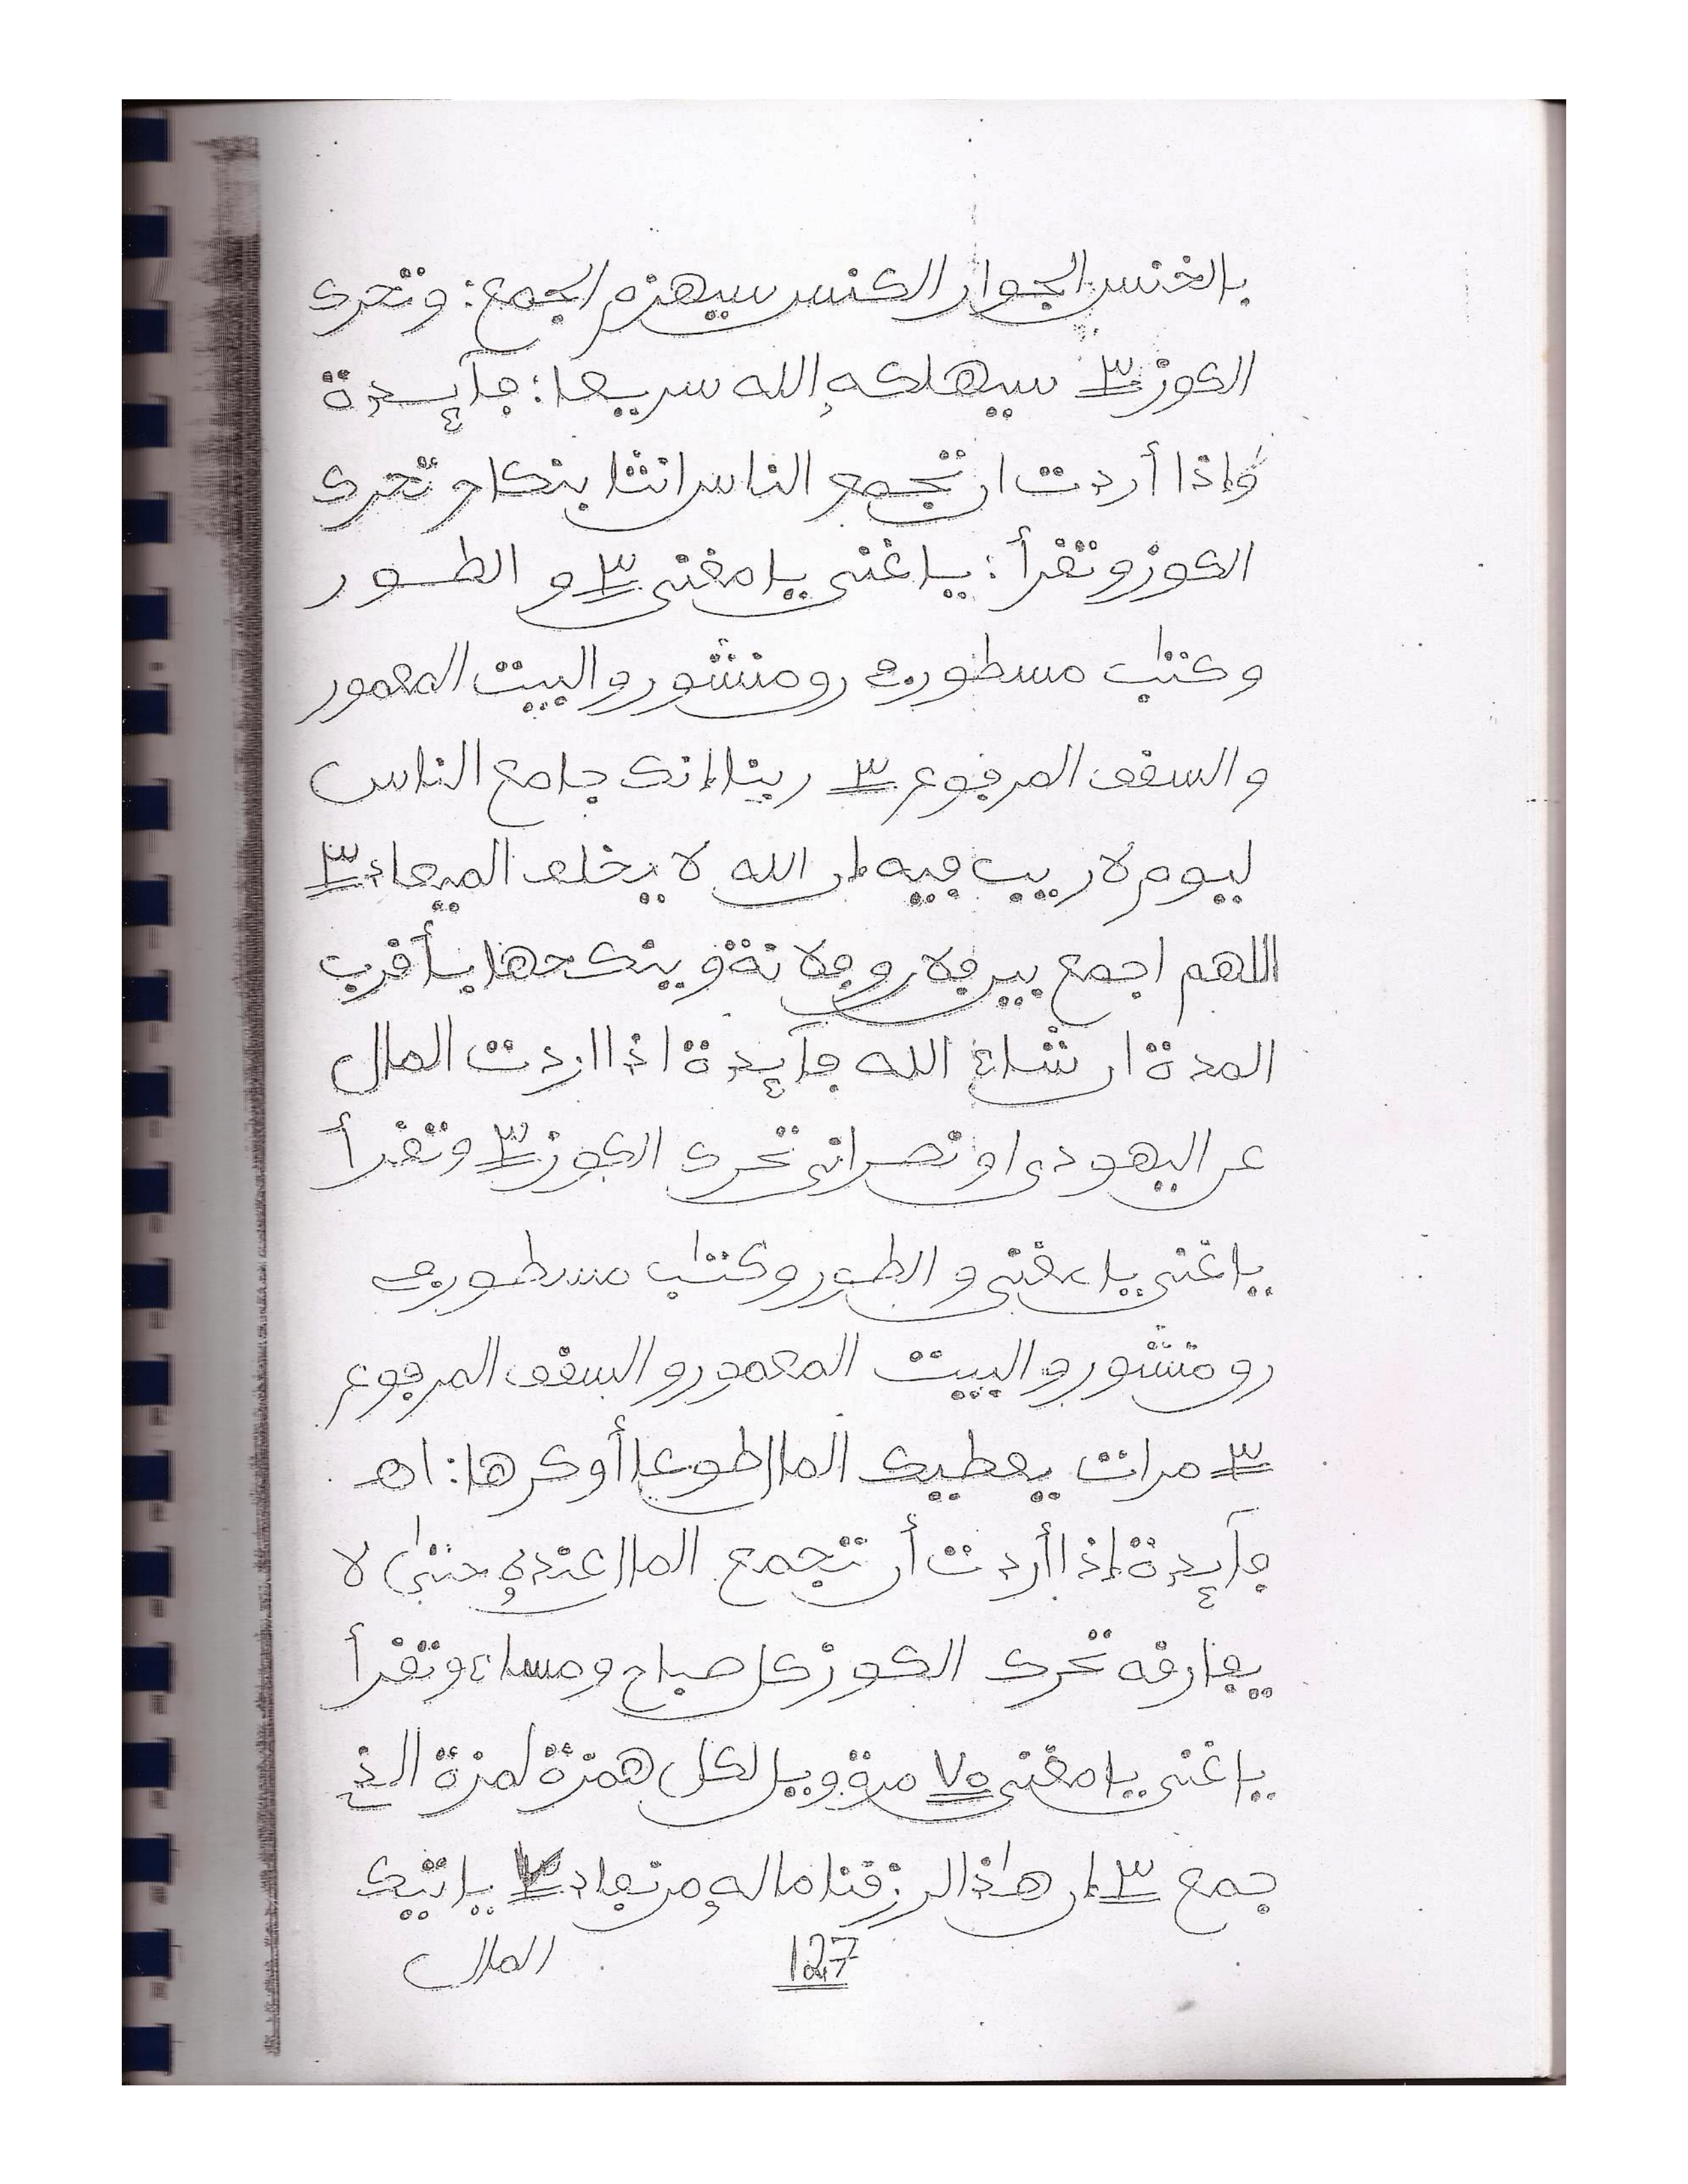 بالخنس الجوار الكنس سيهزم الجمع: وتحرك
الكوز ٣ سيهلكه الله سريعا: فآيدة
وإذا أردت ان تجمع الناس انثا بنكاح تحرك
الكوز وتقرأ: يا غني يا مغني ٣ و الطور
وكتٰب مسطور في رو منشور والبيت المعمور
والسقف المرفوع ٣ ربنا إنك جامع الناس
ليوم لا ريب فيه إن الله لا يخلف الميعاد ٣
اللهم اجمع بين فلان وفلانة وينكحها بأقرب
المدة ان شاء الله فآيدة اذا اردت المال
عن اليهودي او نصراني تحرك الكوز ٣ وتقرأ
يا غني يا مغني و الطور وكتٰب مسطور في
رو منشور والبيت المعمور والسقف المرفوع
٣ مرات يعطيك المال طوعا أو كرها: اهـ
فآيدة إذا أردت أن تجمع المال عنده حتىٰ لا
يفارقه تحرك الكوز كل صباح ومساء وتقرأ
يا غني يا مغني ٧٥ مرة ويل لكل همزة لمزة الذ
جمع ٣ إن هٰذا لرزقنا ماله من نفاد ٣ ياتيك
127 المال